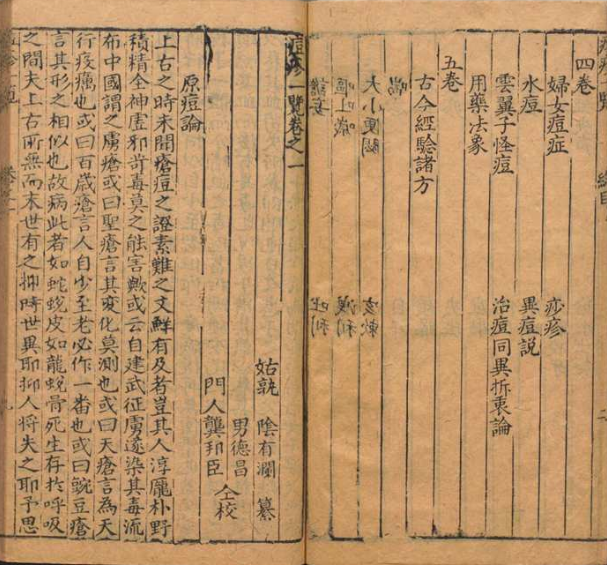 四卷
婦女痘症 疹疹
水痘 異痘說
雲翼子怪痘 治痘同異折衷論
用藥法象
五卷
古今經驗諸方
痘疹一覽卷之一
姑孰 陰有瀾 纂
男德昌
門人龔邦臣 仝校
原痘論
上古之時未聞瘡痘之證素難之文鮮有及者豈其人淳龐朴野
積精全神虛邪苛毒莫之能害歟或云自建武征虜遂染其毒流
布中國謂之虜瘡或曰聖瘡言其變化莫測也或曰天瘡言為天
行疫癘也或曰百歲瘡言人自少至老必作一番也或曰豌豆瘡
言其形之相似也故病此者如蛇蛻皮如龍蛻骨死生存於呼吸
之間夫上古所無而末世有之抑時世異耶抑人將失之耶予思